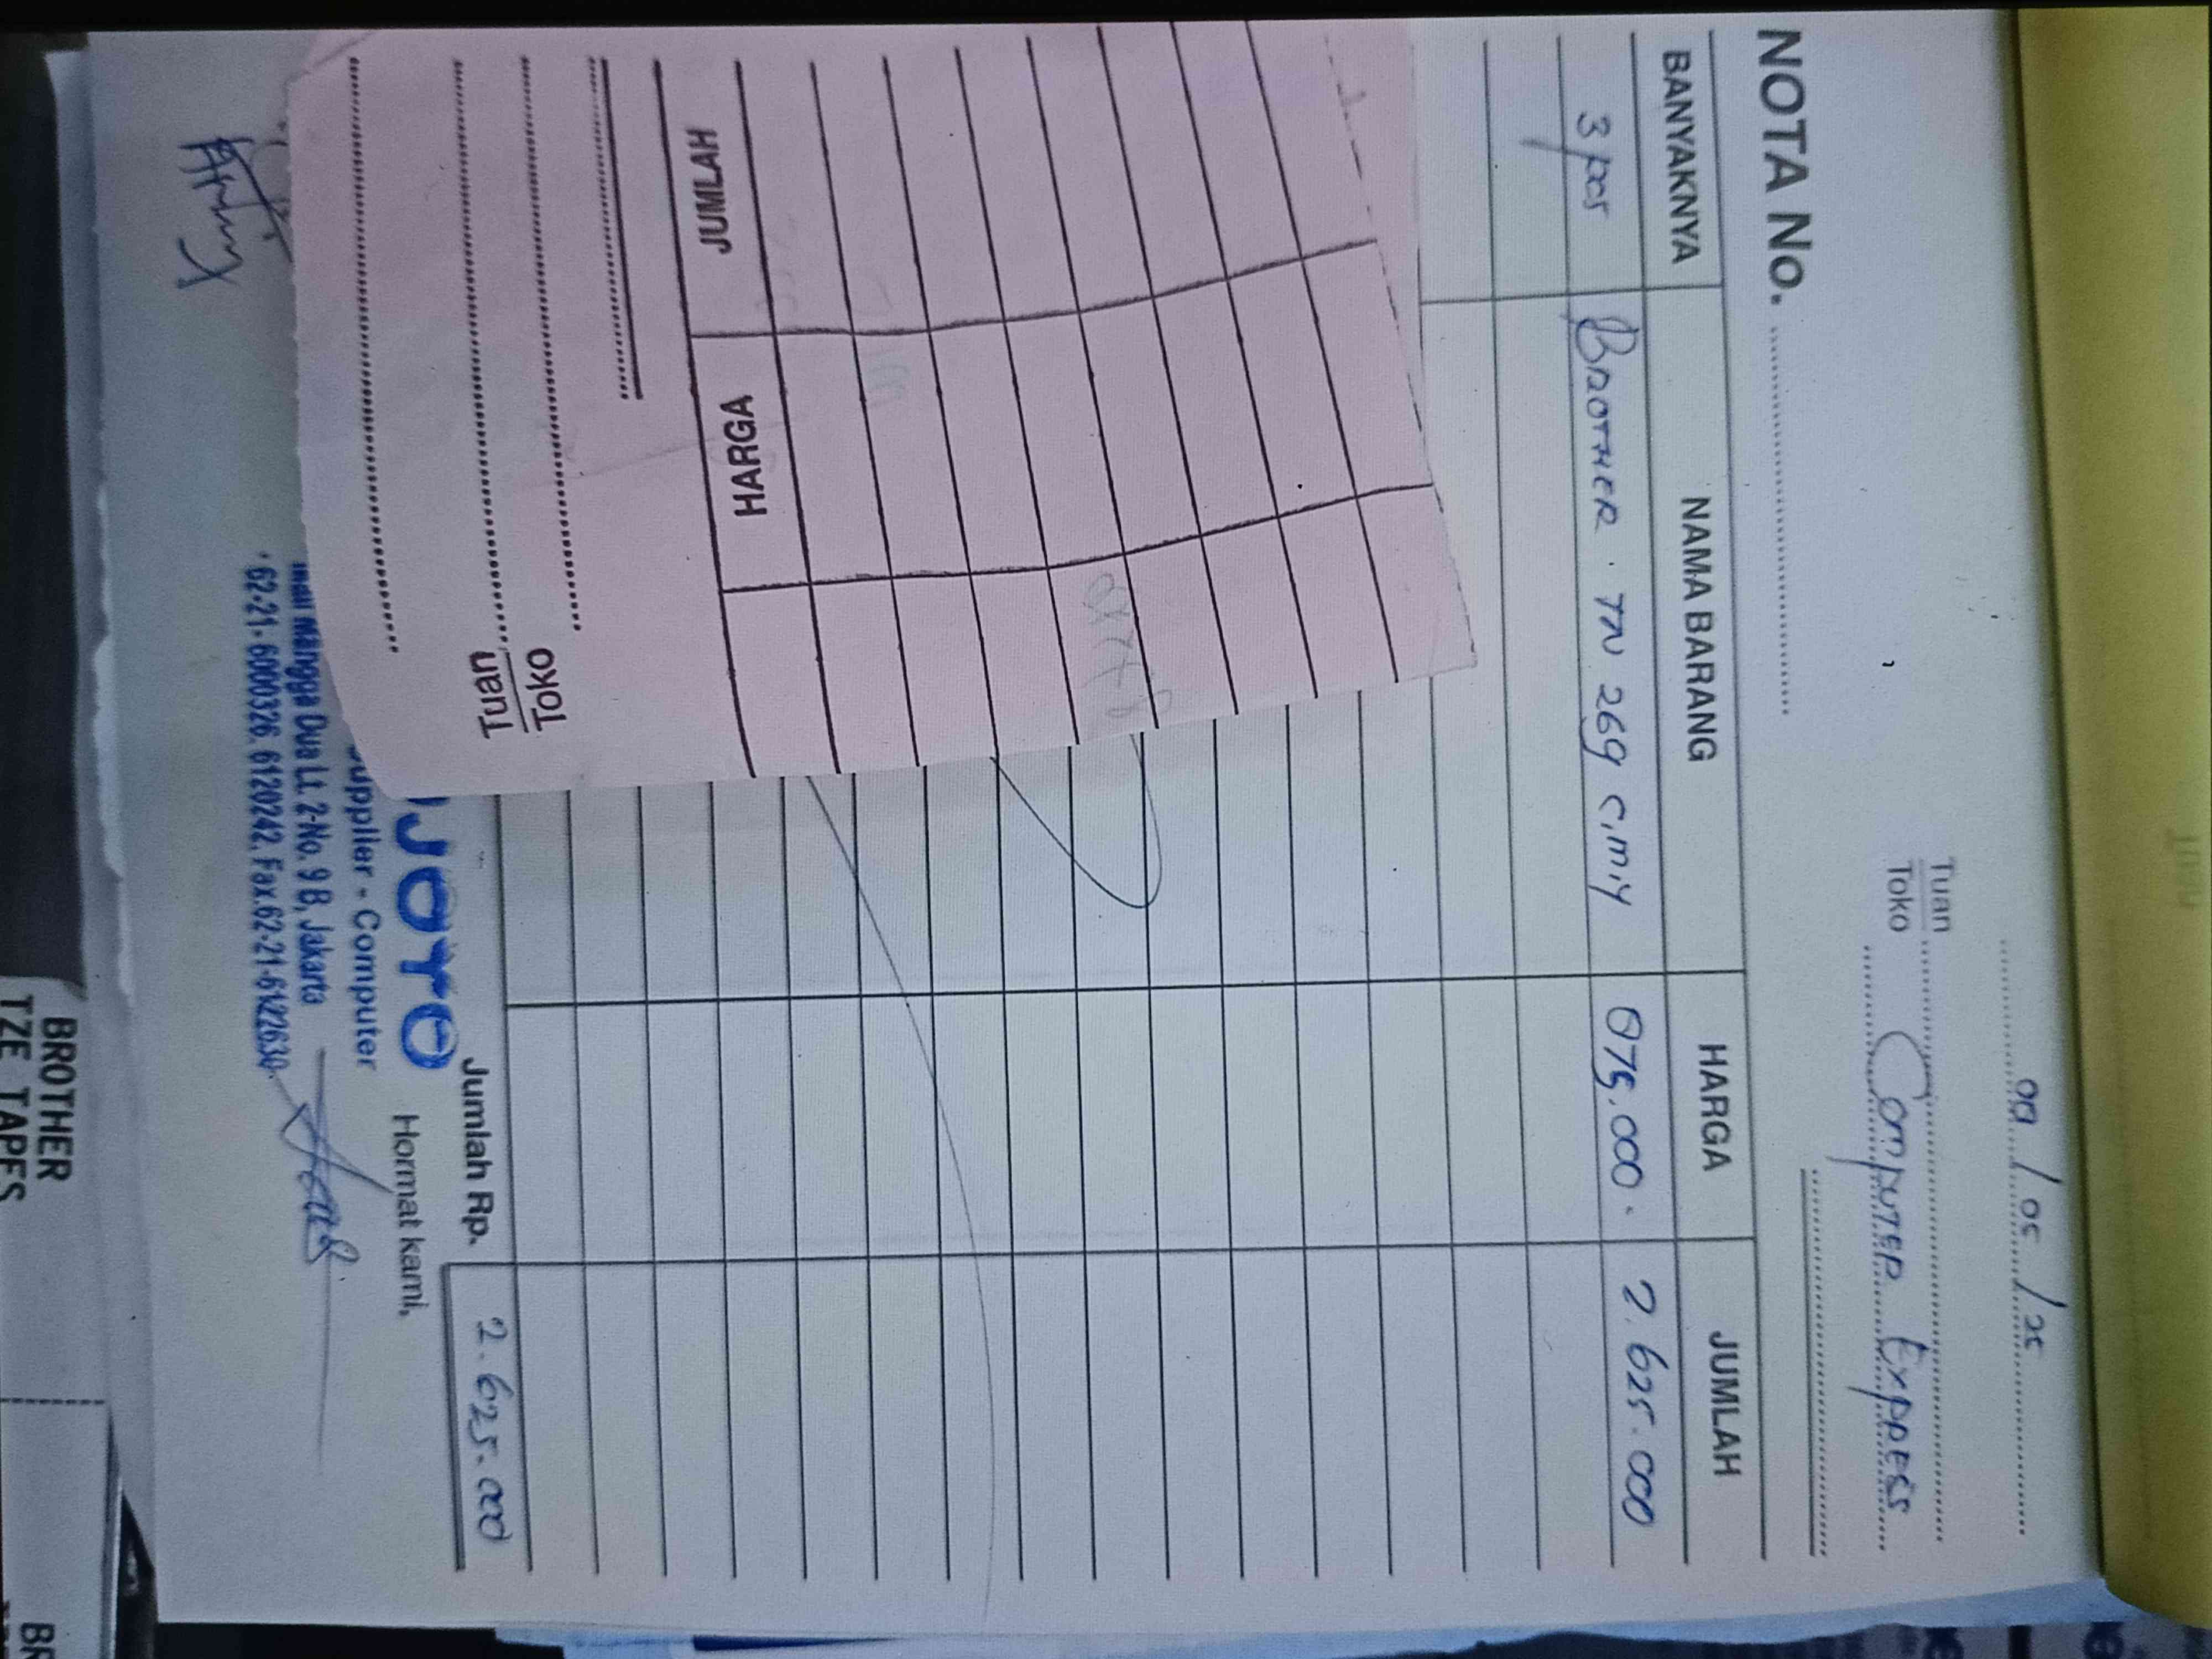 09/05/25
Tuan
Toko Computer Express
NOTA No.
BANYAKNYA NAMA BARANG HARGA JUMLAH
3 pcs BROTHER TN 269 C,M,Y 875.000. 2.625.000
Jumlah Rp. 2.625.000
Hormat kami,
JOYO
Supplier - Computer
Mangga Dua Lt. 2-No. 9 B, Jakarta
62-21- 6000326, 6120242, Fax.62-21-6122630
Tuan
Toko
HARGA JUMLAH
BROTHER
TZE TAPES
BR